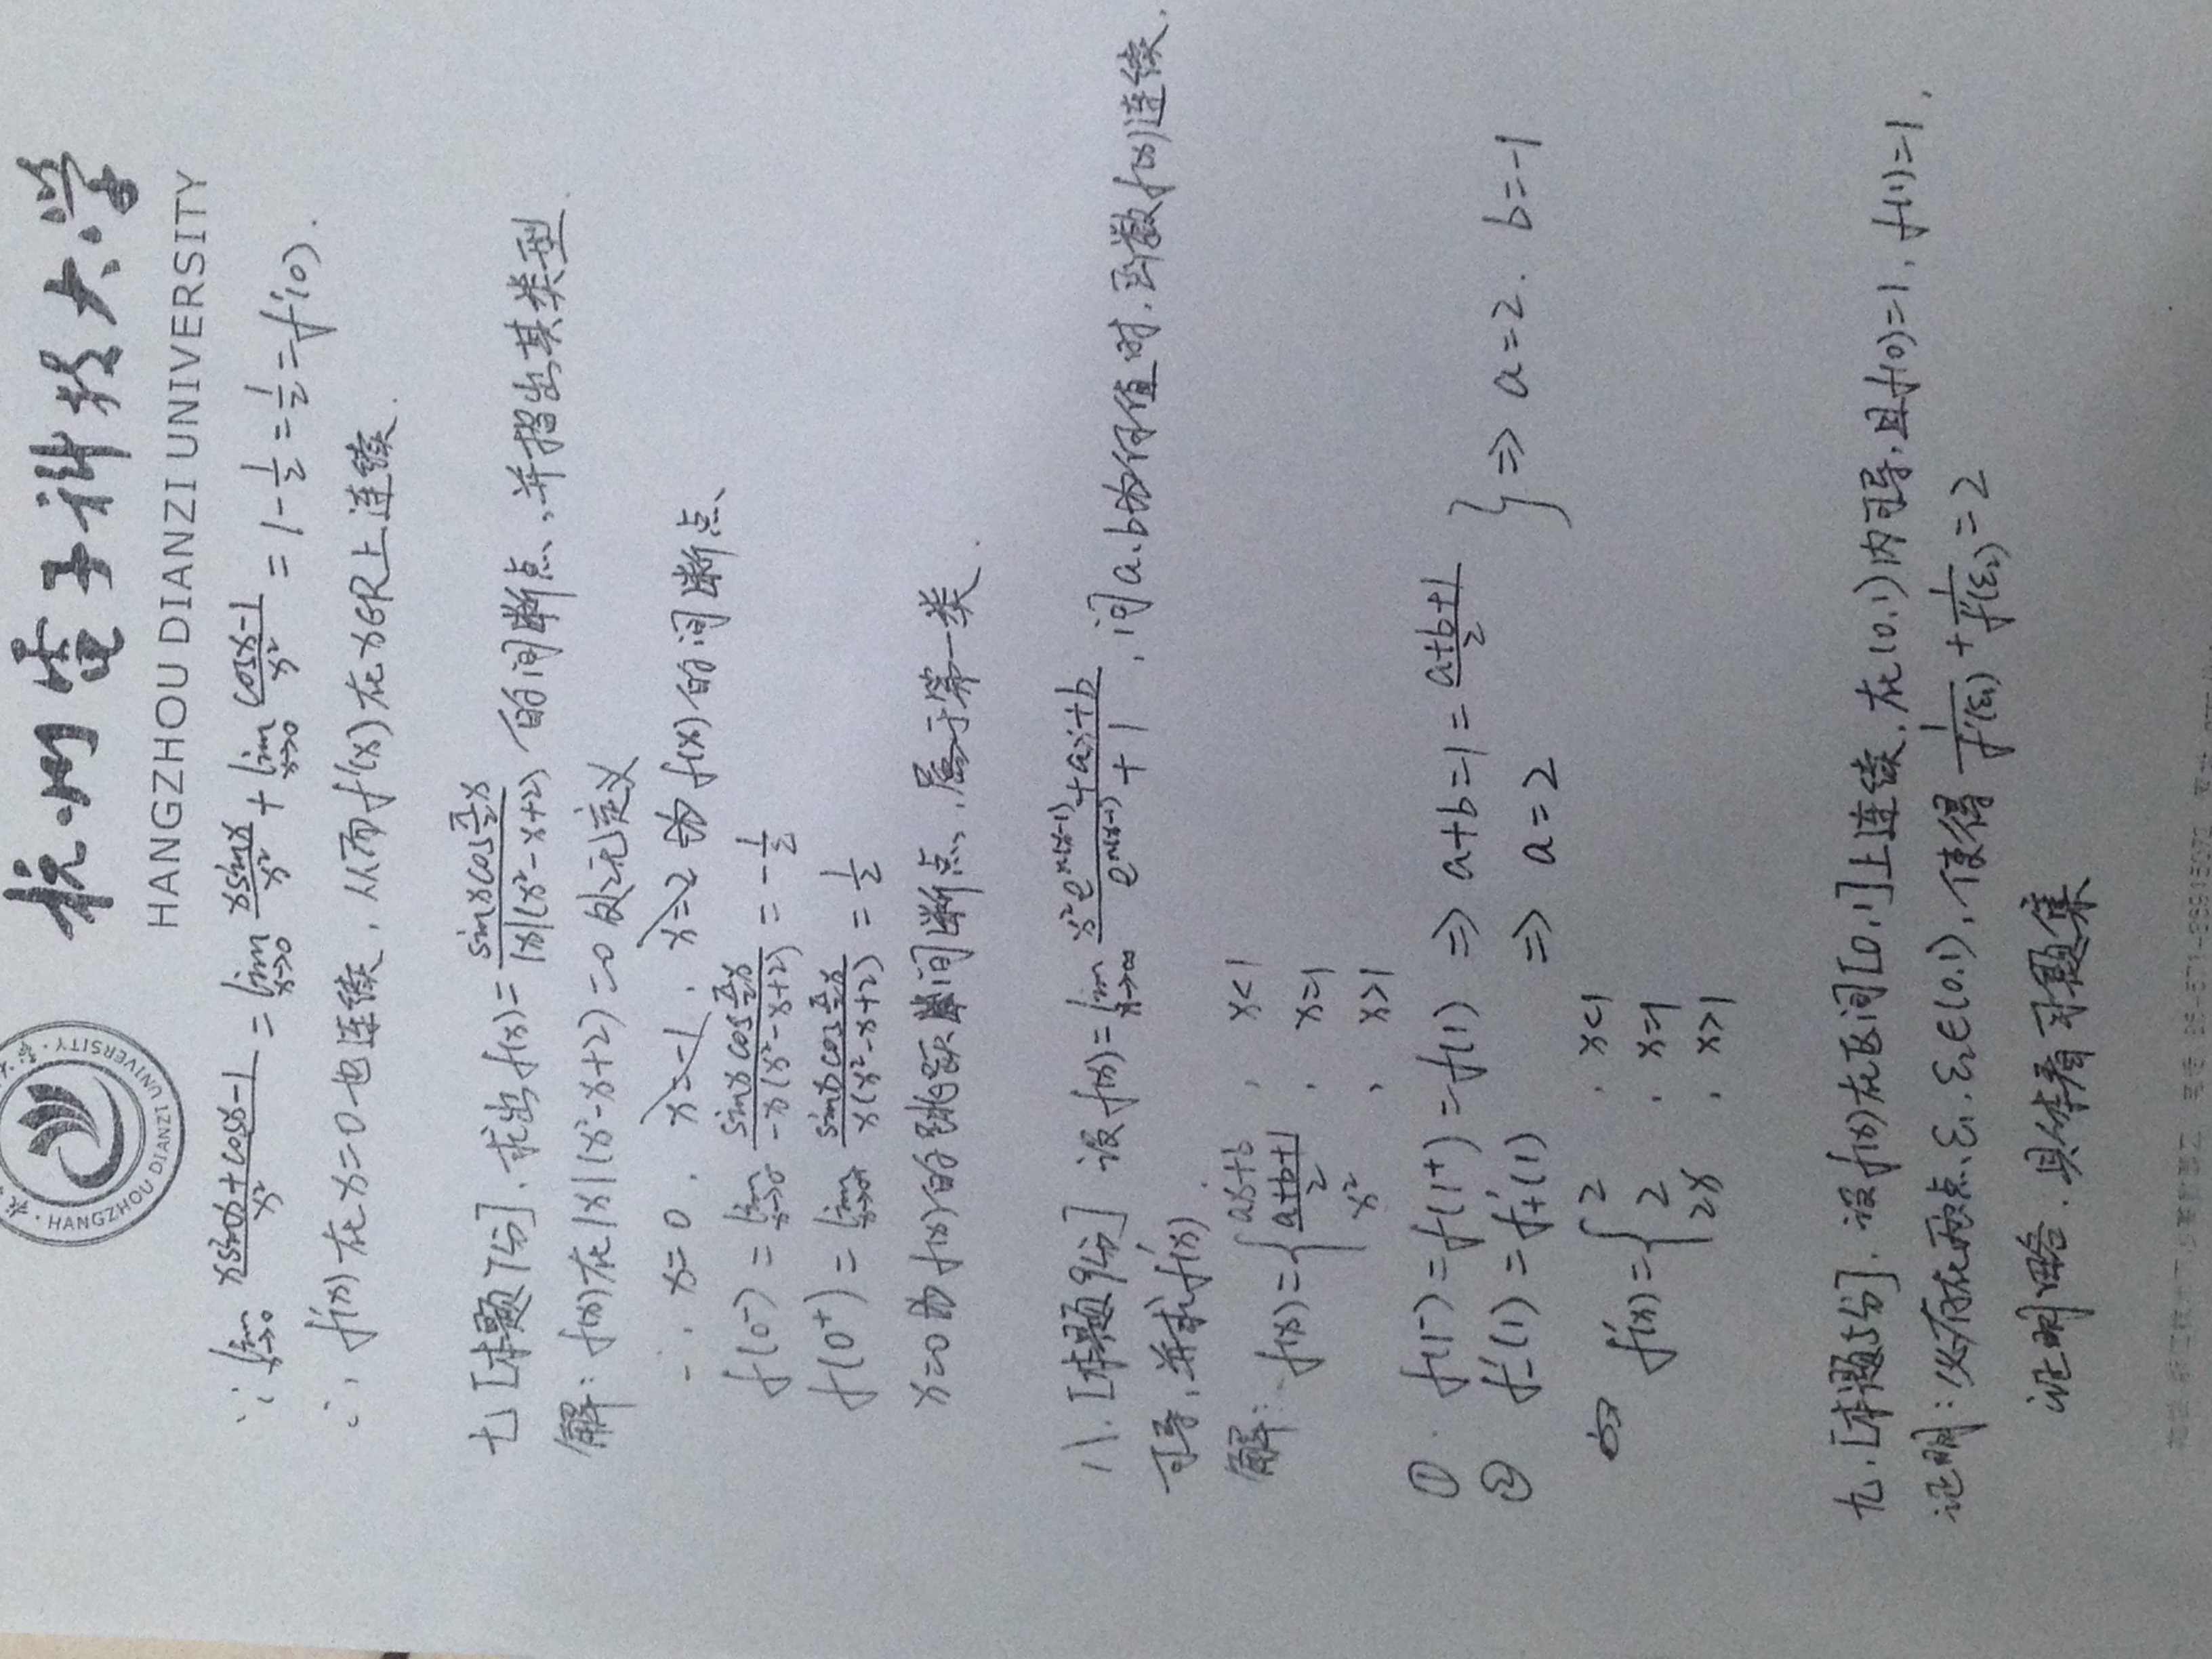 HANGZHOU DIANZI UNIVERSITY
杭州電子科技大学
HANGZHOU DIANZI UNIVERSITY
∵ lim x→0 (xsinx+cosx-1)/x² = lim x→0 xsinx/x² + lim x→0 (cosx-1)/x² = 1-1/2 = 1/2 = f'(0).
∴ f'(x)在x=0也连续,从而f'(x)在x∈R上连续.
七[本题7分].求出f(x)= (sinxcos(π/2)x)/(|x|(x²-x+2)) 的间断点,并指出其类型.
解: f(x)在|x|(x²-x+2)=0处无定义
∴ x=0, x=-1, x=2 为f(x)的间断点
f(0⁻) = lim x→0⁻ (sinxcos(π/2)x)/(-x(x²-x+2)) = -1/2
f(0⁺) = lim x→0⁺ (sinxcos(π/2)x)/(x(x²-x+2)) = 1/2
x=0为f(x)的跳跃间断点,属于第一类.
八.[本题9分] 设f(x)= lim n→∞ (x²e^{n(x-1)}+ax+b)/(e^{n(x-1)}+1),问a、b为何值时,函数f(x)连续.
可导,并求f'(x).
解: f(x)= { ax+b , x<1
(a+b+1)/2 , x=1
x² , x>1
① f(1⁻)=f(1⁺)=f(1) ⇒ a+b=1=(a+b+1)/2
② f'₋(1)=f'₊(1) ⇒ a=2 } ⇒ a=2. b=-1
f'(x)= { 2 , x<1
2 , x=1
2x , x>1
九.[本题5分].设f(x)在区间[0,1]上连续,在(0,1)内可导,且f(0)=1,f(1)=1,
证明:必存在两点ξ₁,ξ₂∈(0,1),使得 1/f'(ξ₁) + 1/f'(ξ₂) = 2
证明略.具体看习题集